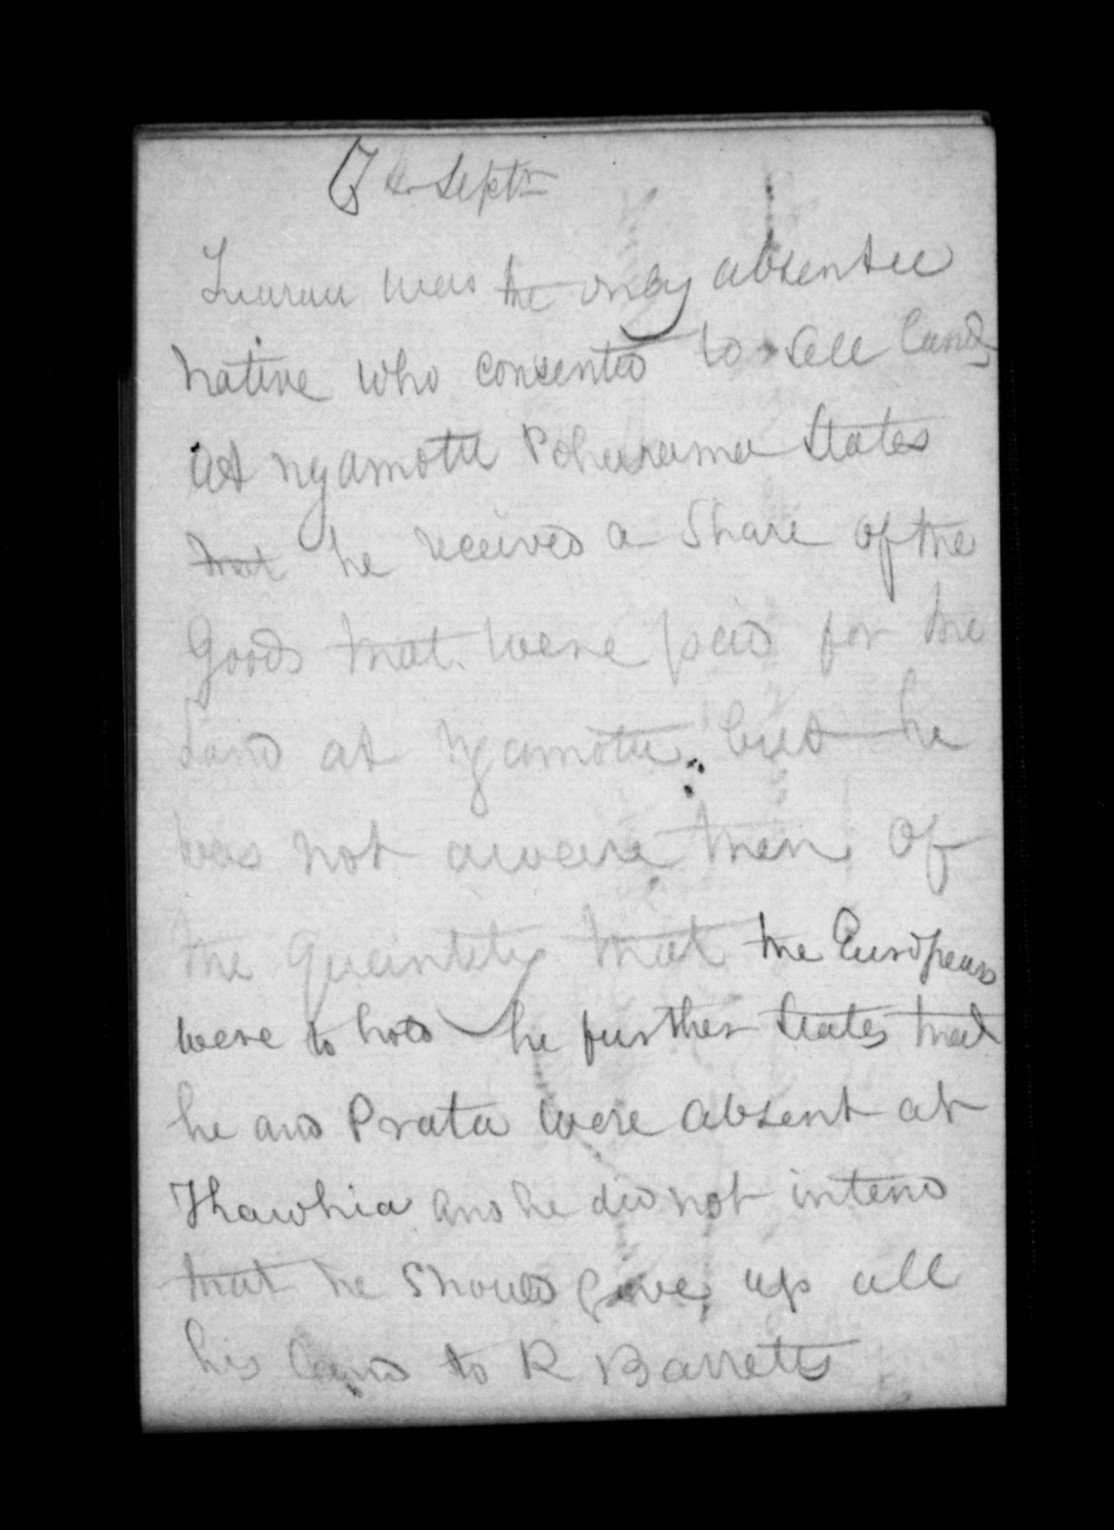 7th Septr
Tuarau was the only absentee
native who consented to sell land
at ngamotu Poharama States
that he received a Share of the
Goods that were paid for the
Land at ngamotu. but he
was not aware then of
the quantity that the Europeans
were to hold he further States that
he and Prata were absent at
Khawhia and he did not intend
that he should give up all
his land to R Barretts